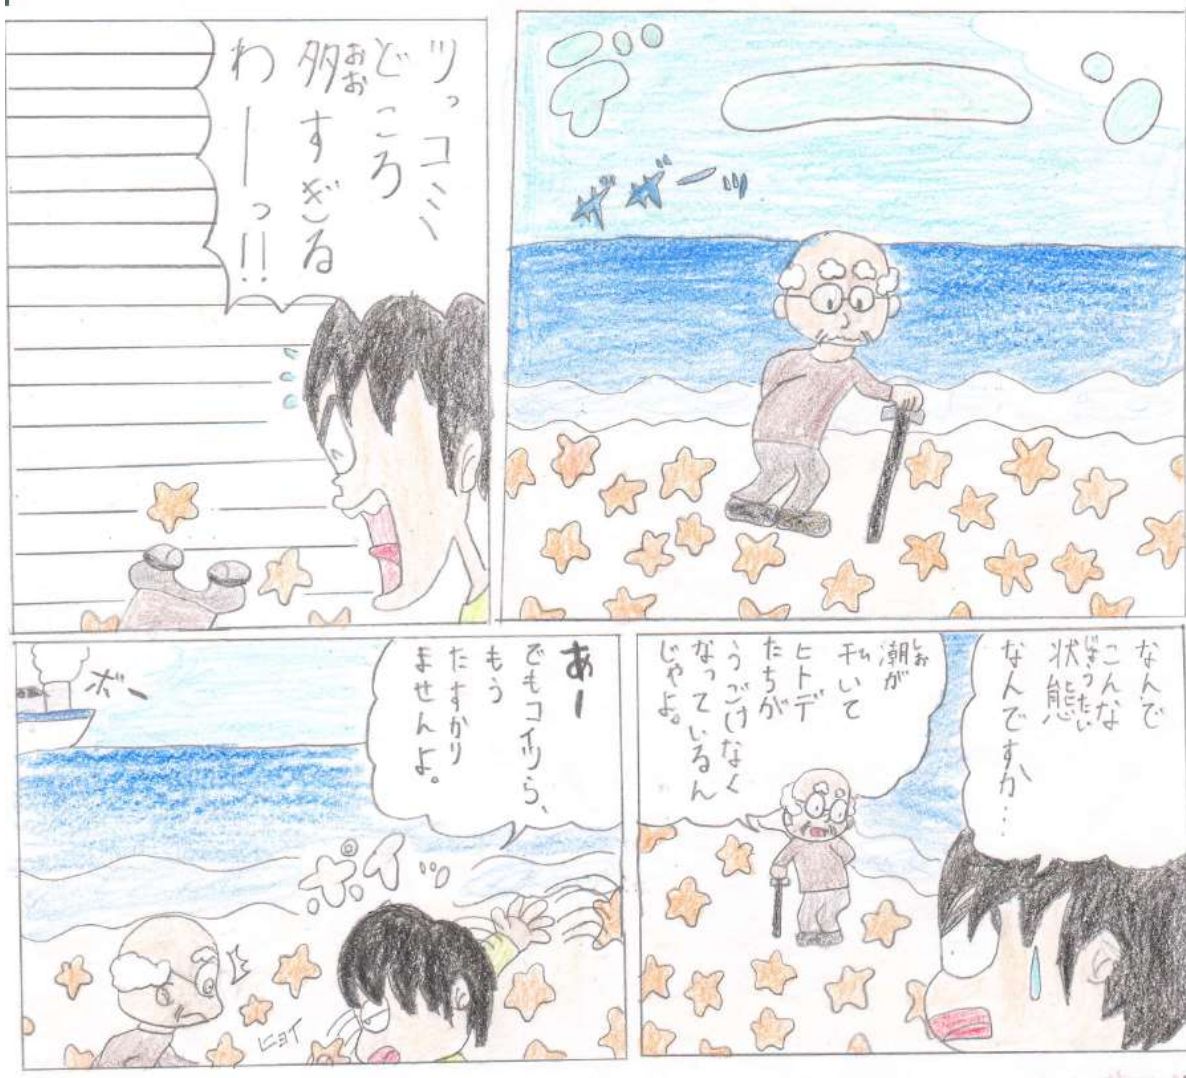 デーン
ザザーッ
ツッコミ
どころ
多すぎる
おお
わーっ!!
なんで
こんな
状態
じょうたい
なんですか…
潮が
しお
干いて
ひ
ヒトデ
たちが
うごけなく
なっているん
じゃよ。
あー
でもコイツら、
もう
たすかり
ませんよ。
ポイッ
ヒョイ
ボー